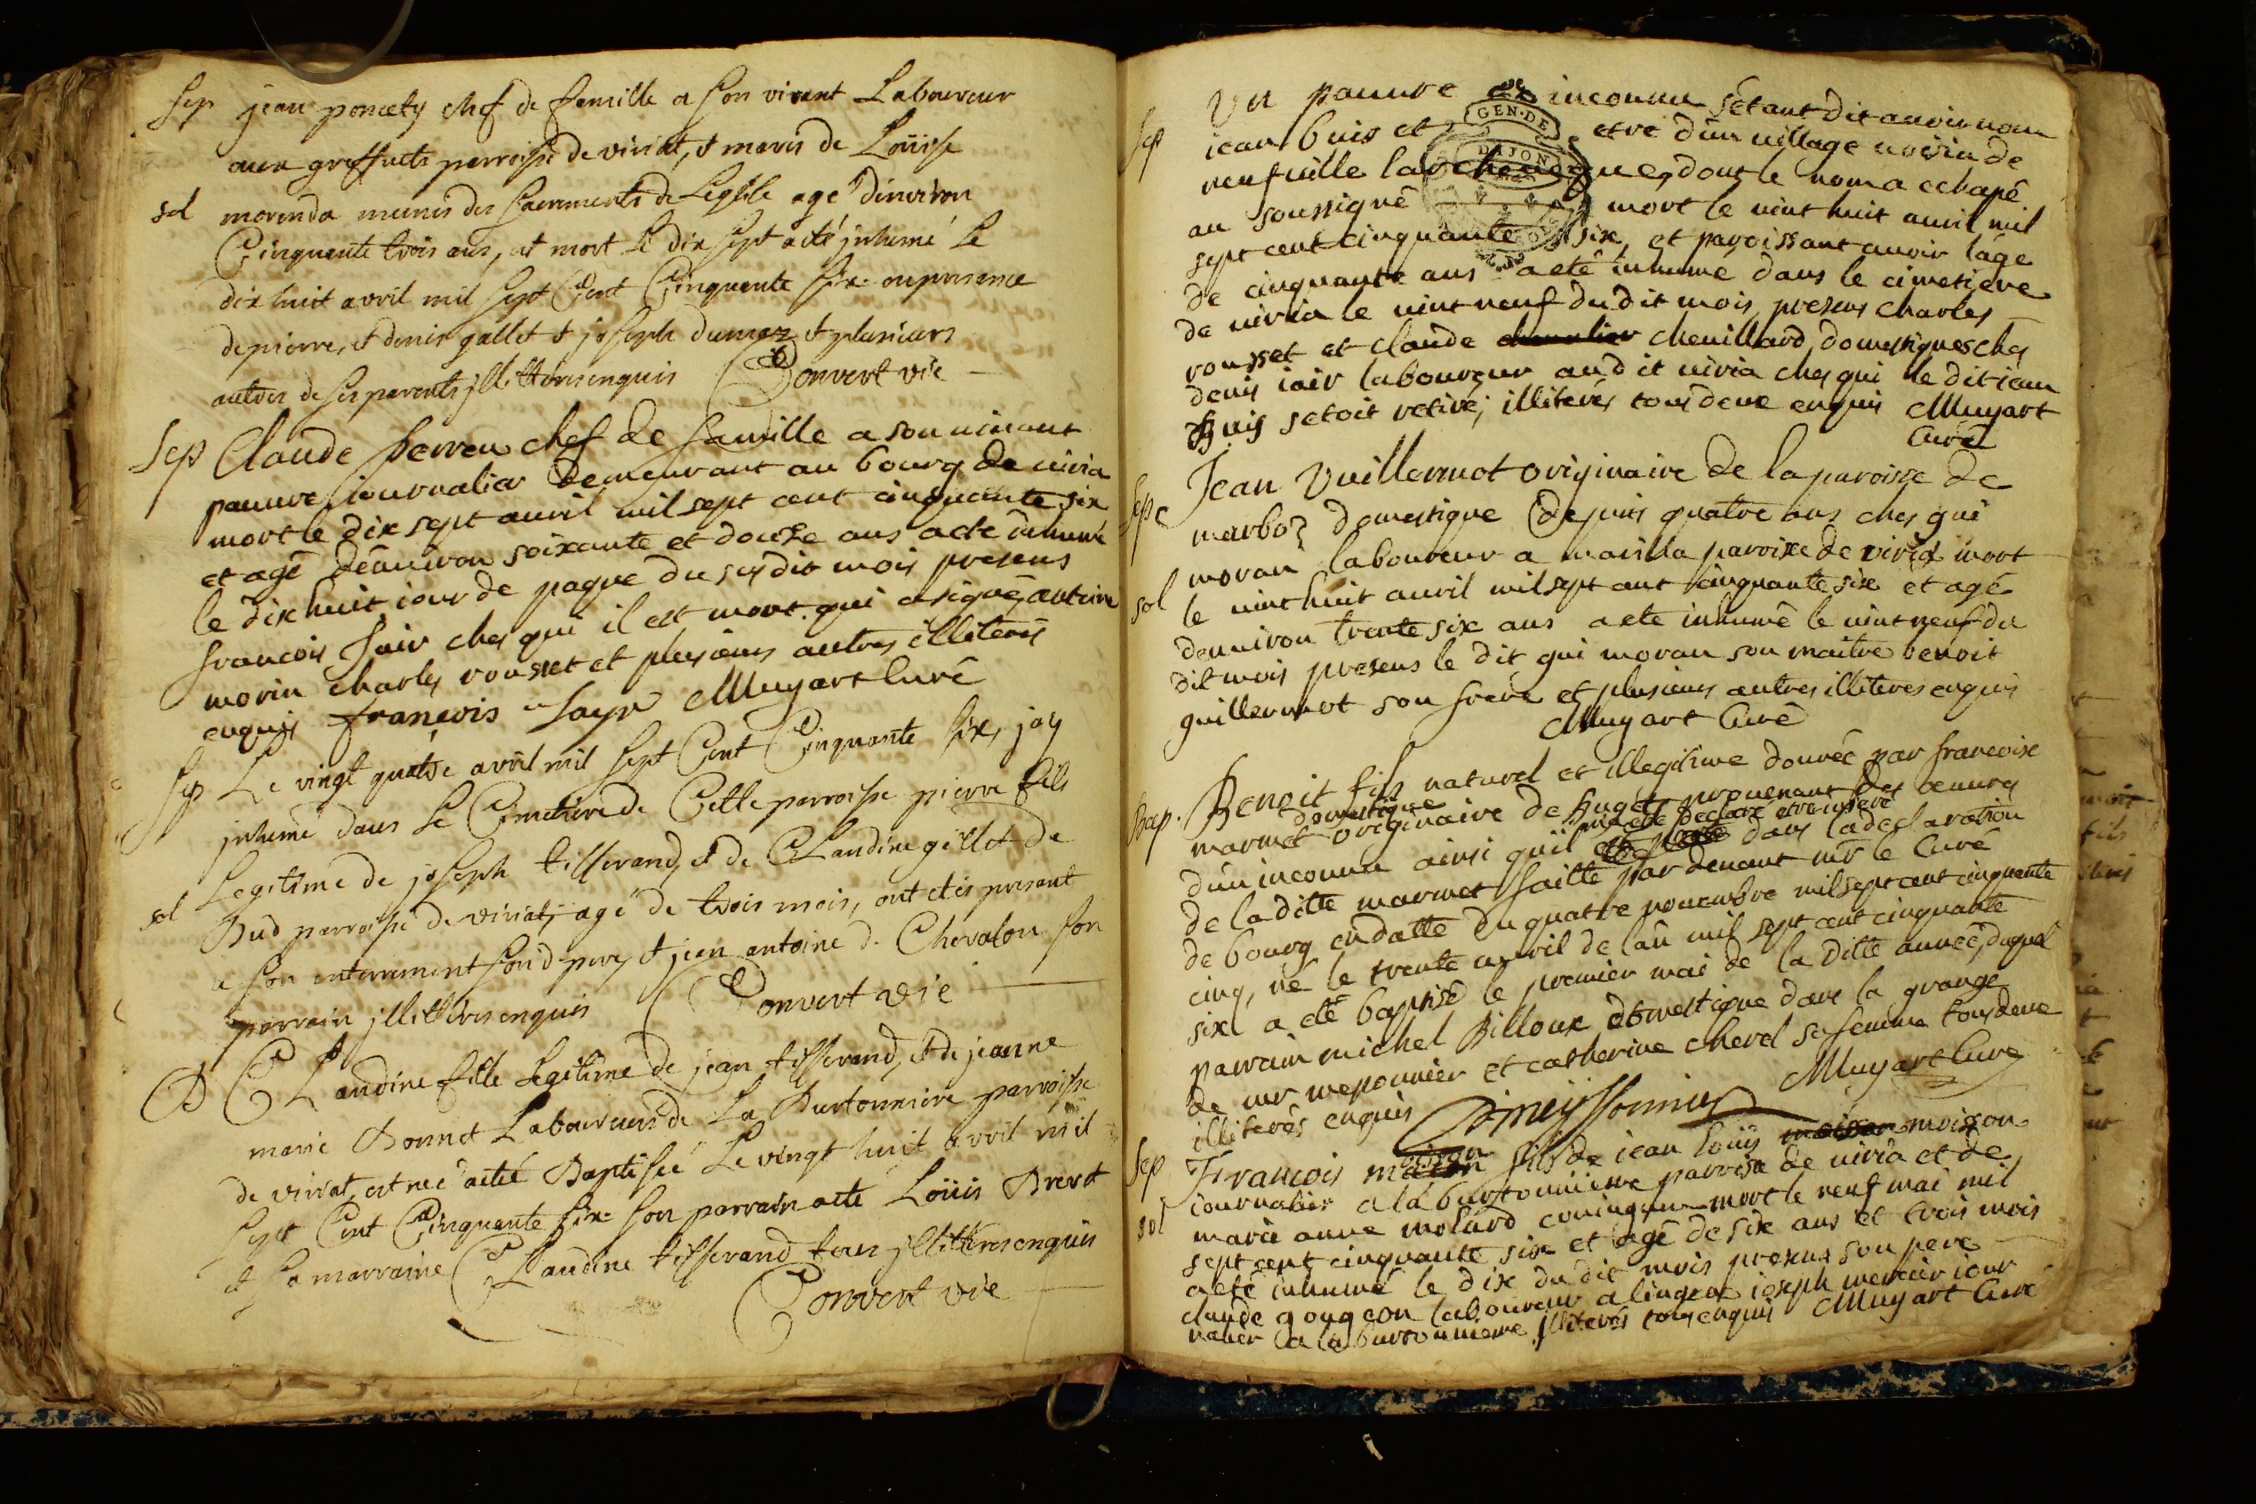 Sep jean poncety chef de famille a son vivant Laboureur
aux greffiets parroisse de viriat, et maris de Loüise
sol morenda munis des sacrements de Leglise agé dinviron
Cinquante trois ans, et mort le dix sept a eté jnhumé Le
dix huit avril mil sept Cent Cinquante six en presence
de pierre, et denis gallet et joseph dumaz et plusieurs
autres de ses parents jllitterés enquis Convert vic
Sep Claude perren chef de famille a son vivant
pauvre journalier demeurant au bourg de viria
mort le dix sept auril mil sept cent cinquante six
et agé denuiron soixante et douze ans a ete inhumé
le dix huit iour de paque du susdit mois presens
francois Jair ches qui il est mort qui a signé, antoine
morin charles rousset et plusieurs autres illiterés
enquis françois Jayr Muyart Curé
Sep Le vingt quatre avril mil sept Cent Cinquante six, jay
jnhumé dans Le Cimetiere de Cette parroisse pierre fils
Legitime de joseph tisserand, et de CLaudine gillet de
sol Bud parroisse de viriat, agé de trois mois, ont etés present
a son enterrement son d. pere, et jean antoine d. Chevalon son
parrain jllitterés enquis Convert vic
B CLaudine fille Legitime de jean tisserand, et de jeanne
marie Bonnet Laboureurs de La Burtonniere parroisse
de viriat, est neé a eté Baptiseé Le vingt huit avril mil
sept Cent Cinquante six son parrain a eté Loüis Brevet
et sa marraine CLaudine tisserand tous jllitterés enquis
Convert vic
Sep Un pauure inconnu sétant dit auoir nom
iean buis et etre dun uillage uoisin de
neufuille larcheueque, dont le nom a echapé
au soussigné mort le uint huit auril mil
sept cent cinquante six, et paroissant auoir lâge
de cinquante ans a eté inhumé dans le cimetiere
de uiria le uint neuf du dit mois, presens charles
rousset et claude cheuillard, domestiques ches
denis iair laboureur au dit uiria ches qui le dit iean
buis setoit retiré; illiterés tous deux enquis Muyart
Curé
Sep Jean Vuillermot originaire de la paroisse de
marboz domestique depuis quatre ans ches gui
moran laboureur a mailla paroisse de viria mort
sol le uint huit auril mil sept cent cinquante six et agé
denuiron trente six ans a ete inhumé le uint neuf du
dit mois presens le dit gui moran son maitre benoit
guillermot son frere et plusieurs autres illiteres enquis
Muyart Curé
Bap. Benoit fils naturel et illegitime donnée par francoise
domestique
marmet originaire de prouenant des oeuures
a eté declaré etre inseré
dun inconnu ainsi quil dans la declaration
de la ditte marmet faitte par deuant mr le Curé
de bourg en datte du quatre nouembre mil sept cent cinquante
cinq, né le trente auril de lan mil sept cent cinquante
six a eté baptisé le premier mai de la ditte année, duquel
parrain michel Billoux domestique dans la grange
de mr meponnier et catherine cherel sa femme tous deux
illiterés enquis Meyssonnier Muyart Cure
Sep Francois moison fils de iean loüis moison
iournalier a la burtonniere parroisse de uiria et de
sol marie anne molard conioints mort le neuf mai mil
sept cent cinquante six et agé de six ans et trois mois
a eté inhumé le dix du dit mois presens son pere
claude gougeon laboureur a lingeat ioseph mercier iour
nalier a la burtonniere illiterés tous enquis Muyart Curé
GEN. DE
DIJON